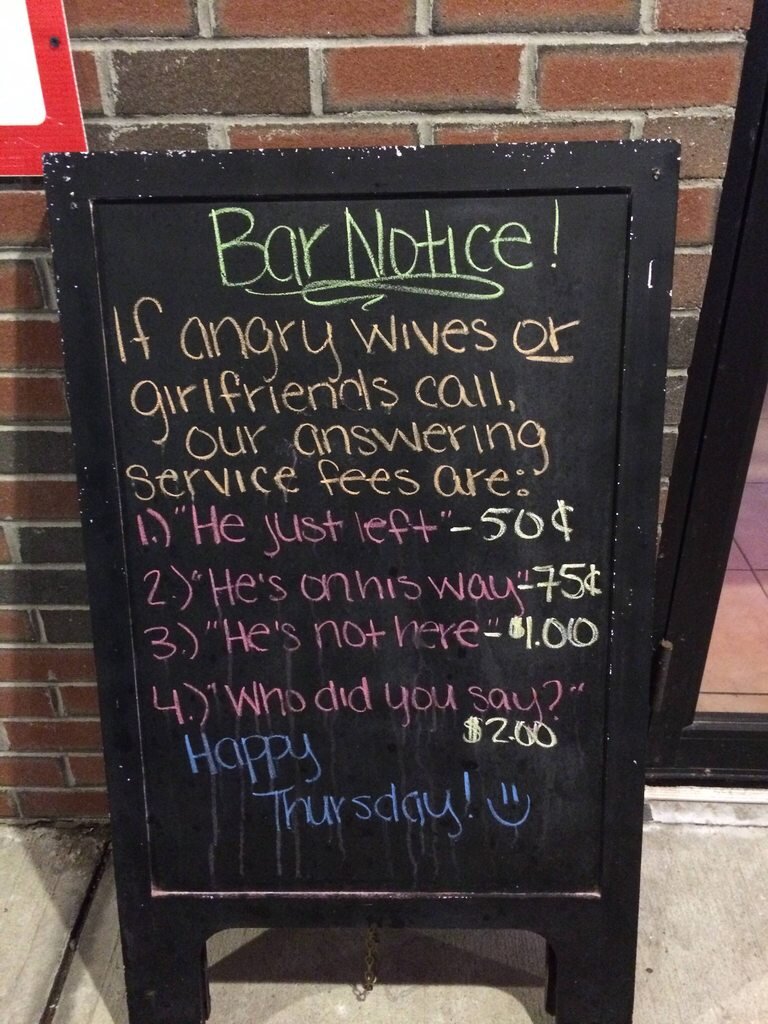 Bar Notice!
If angry wives or
girlfriends call,
our answering
service fees are:
1.) "He just left" - 50¢
2.) "He's on his way" - 75¢
3.) "He's not here" - $1.00
4.) "Who did you say?"
$2.00
Happy
Thursday! :)